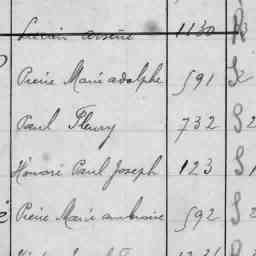 Lucien Arsène 1130 R
Pierre Marie adolphe 591 S
Paul Fleury 732 S 2
Honoré Paul Joseph 123 S 1
Pierre Marie ambroise 592 S 2